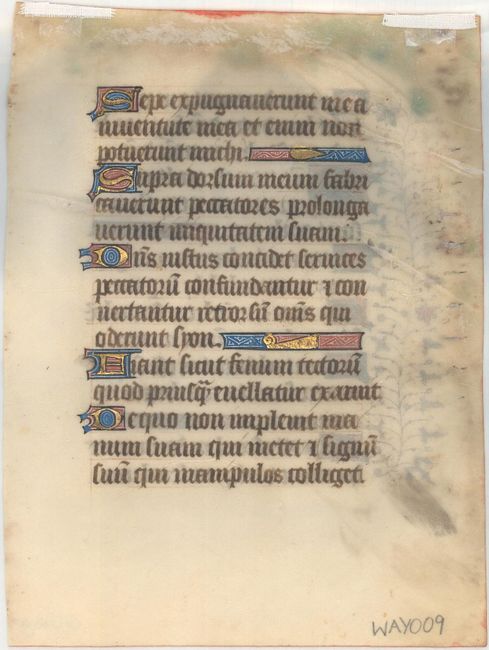 Sepe expugnauerunt me a
iuuentute mea et enim non
potuerunt michi.
Supra dorsum meum fabri
cauerunt peccatores prolonga
uerunt iniquitatem suam.
Dn̄s iustus concidet ceruices
peccatorū confundantur ⁊ con
uertantur retrorsū om̄s qui
oderunt syon.
Fiant sicut fenum tectorū
quod priusq̄ euellatur exaruit
De quo non impleuit ma
num suam qui metet ⁊ signū
suū qui manipulos colliget
WAY009